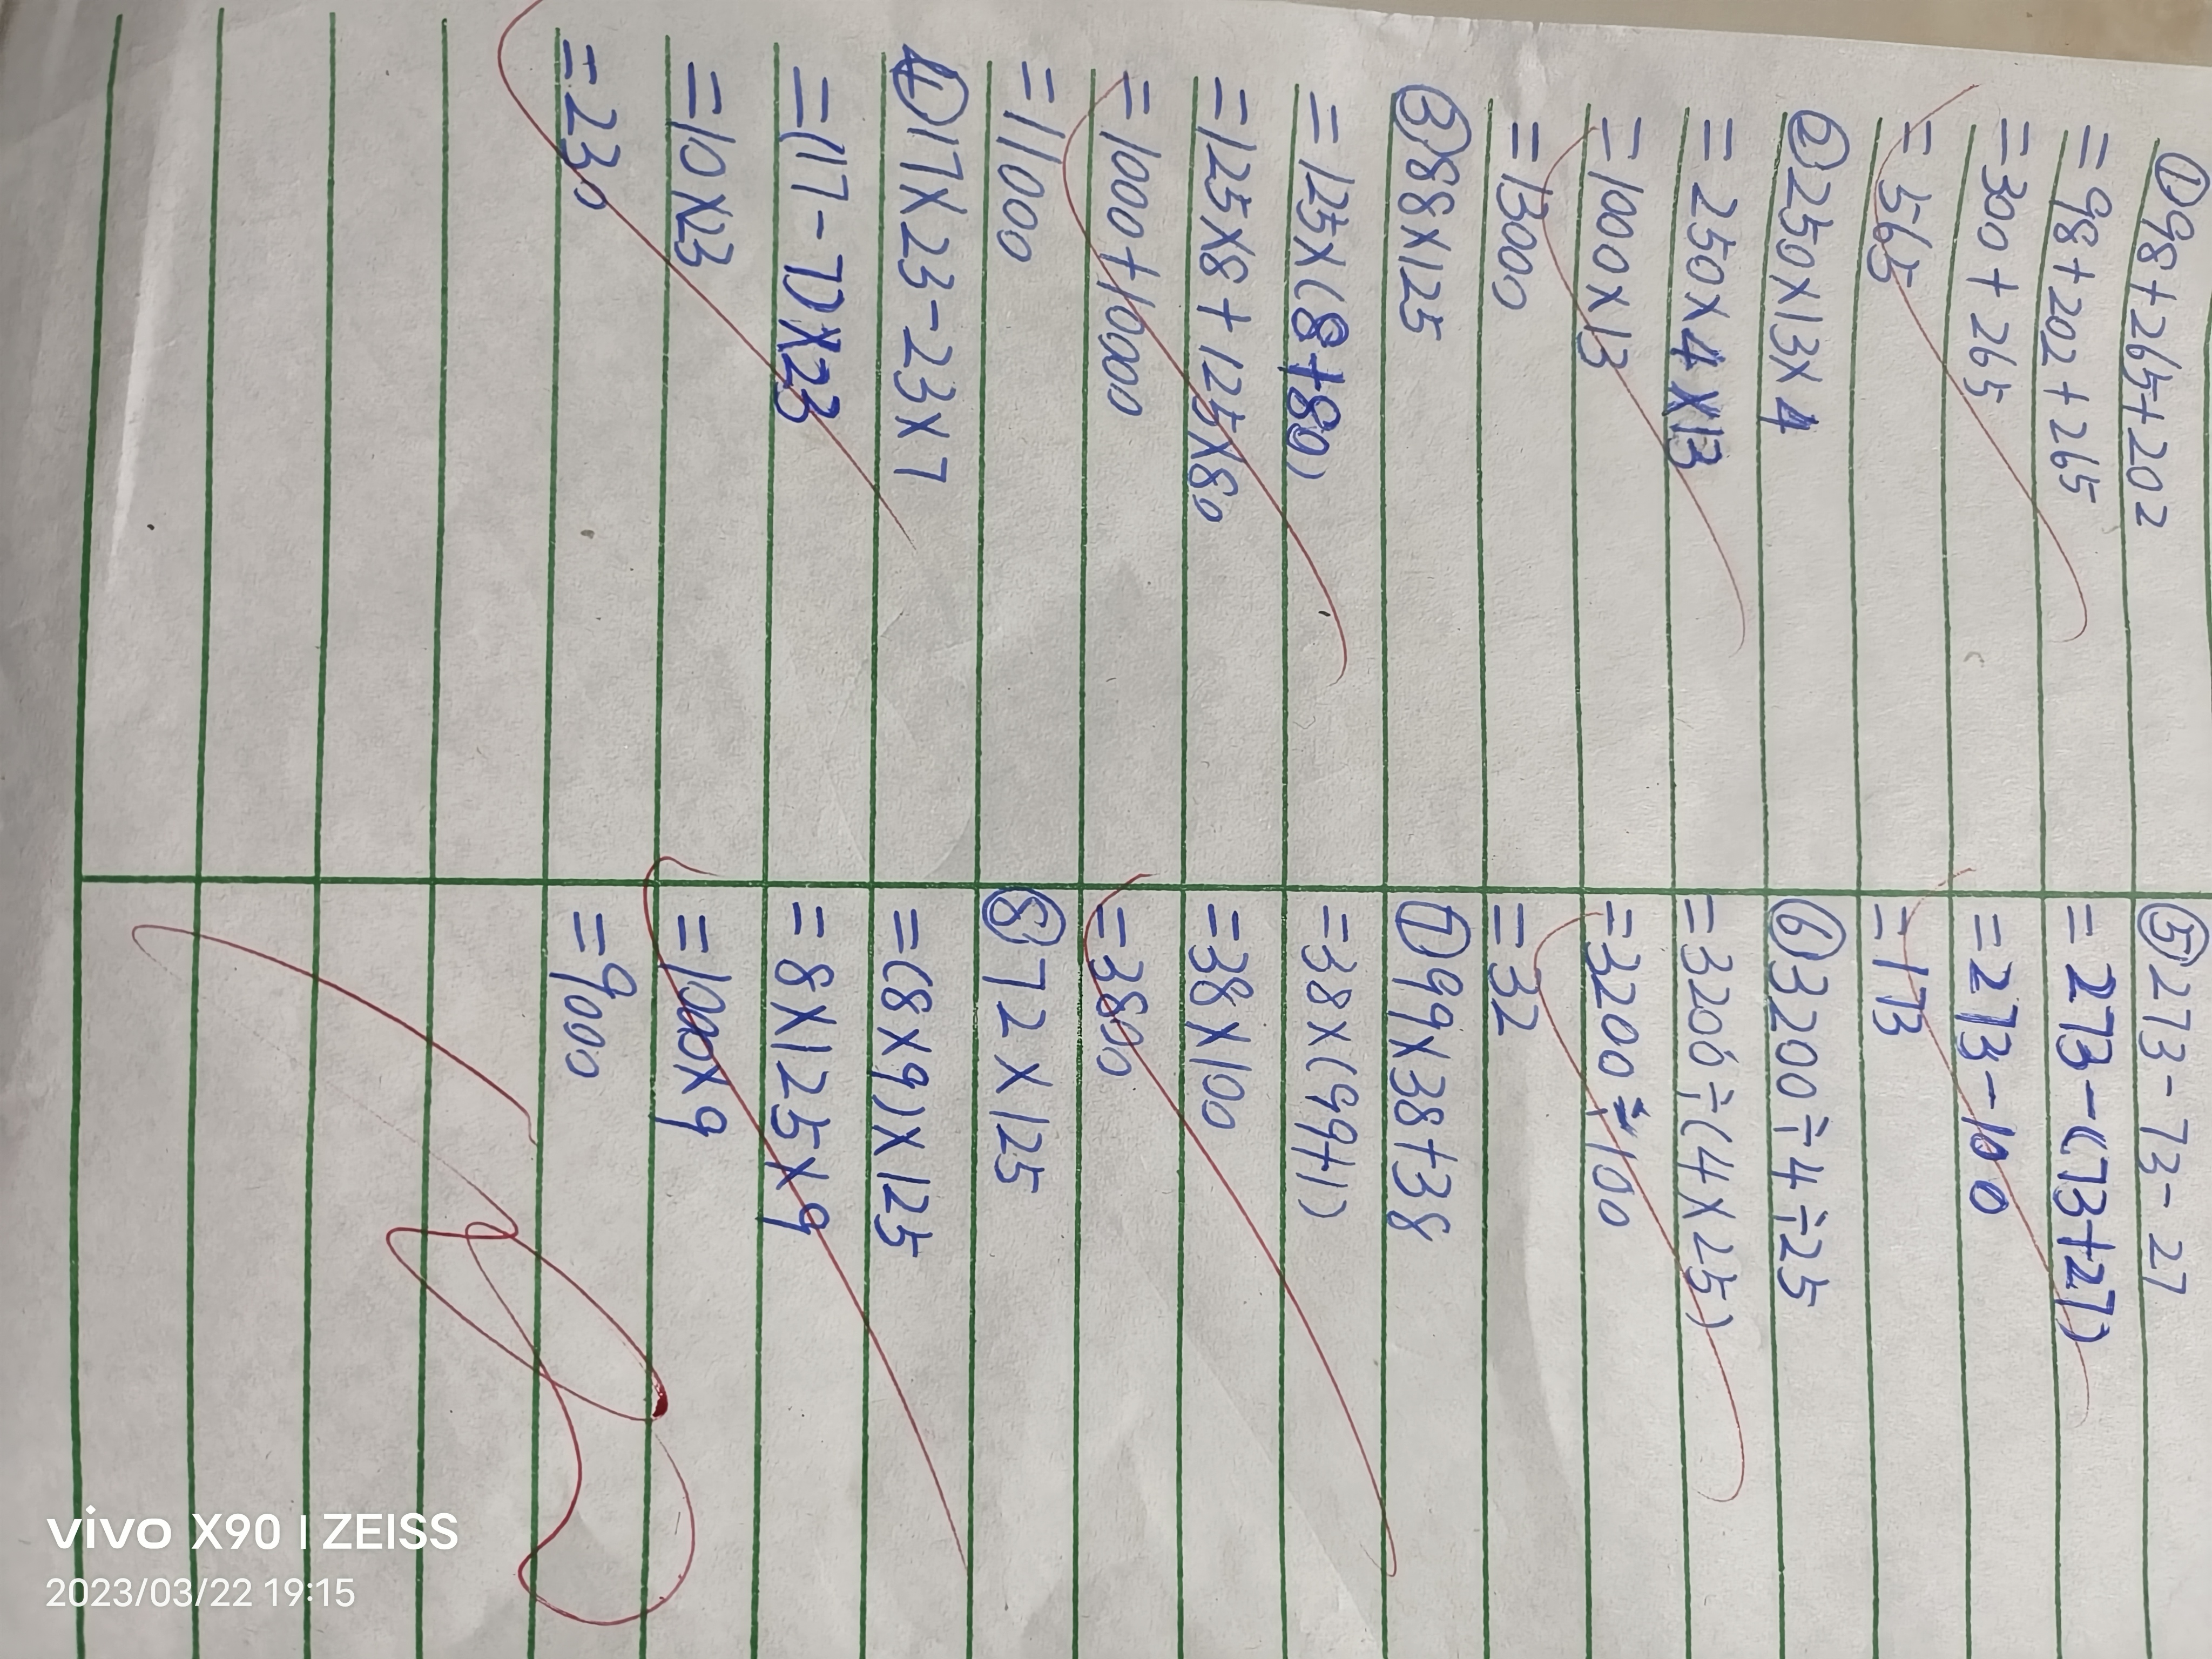 ①98+265+202
=98+202+265
=300+265
=565
②250×13×4
=250×4×13
=1000×13
=13000
③88×125
=125×(8+80)
=125×8+125×80
=1000+10000
=11000
④17×23-23×7
=(17-7)×23
=10×23
=230
⑤273-73-27
=273-(73+27)
=273-100
=173
⑥3200÷4÷25
=3200÷(4×25)
=3200÷100
=32
⑦99×38+38
=38×(99+1)
=38×100
=3800
⑧72×125
=(8×9)×125
=8×125×9
=1000×9
=9000
vivo X90 | ZEISS
2023/03/22 19:15